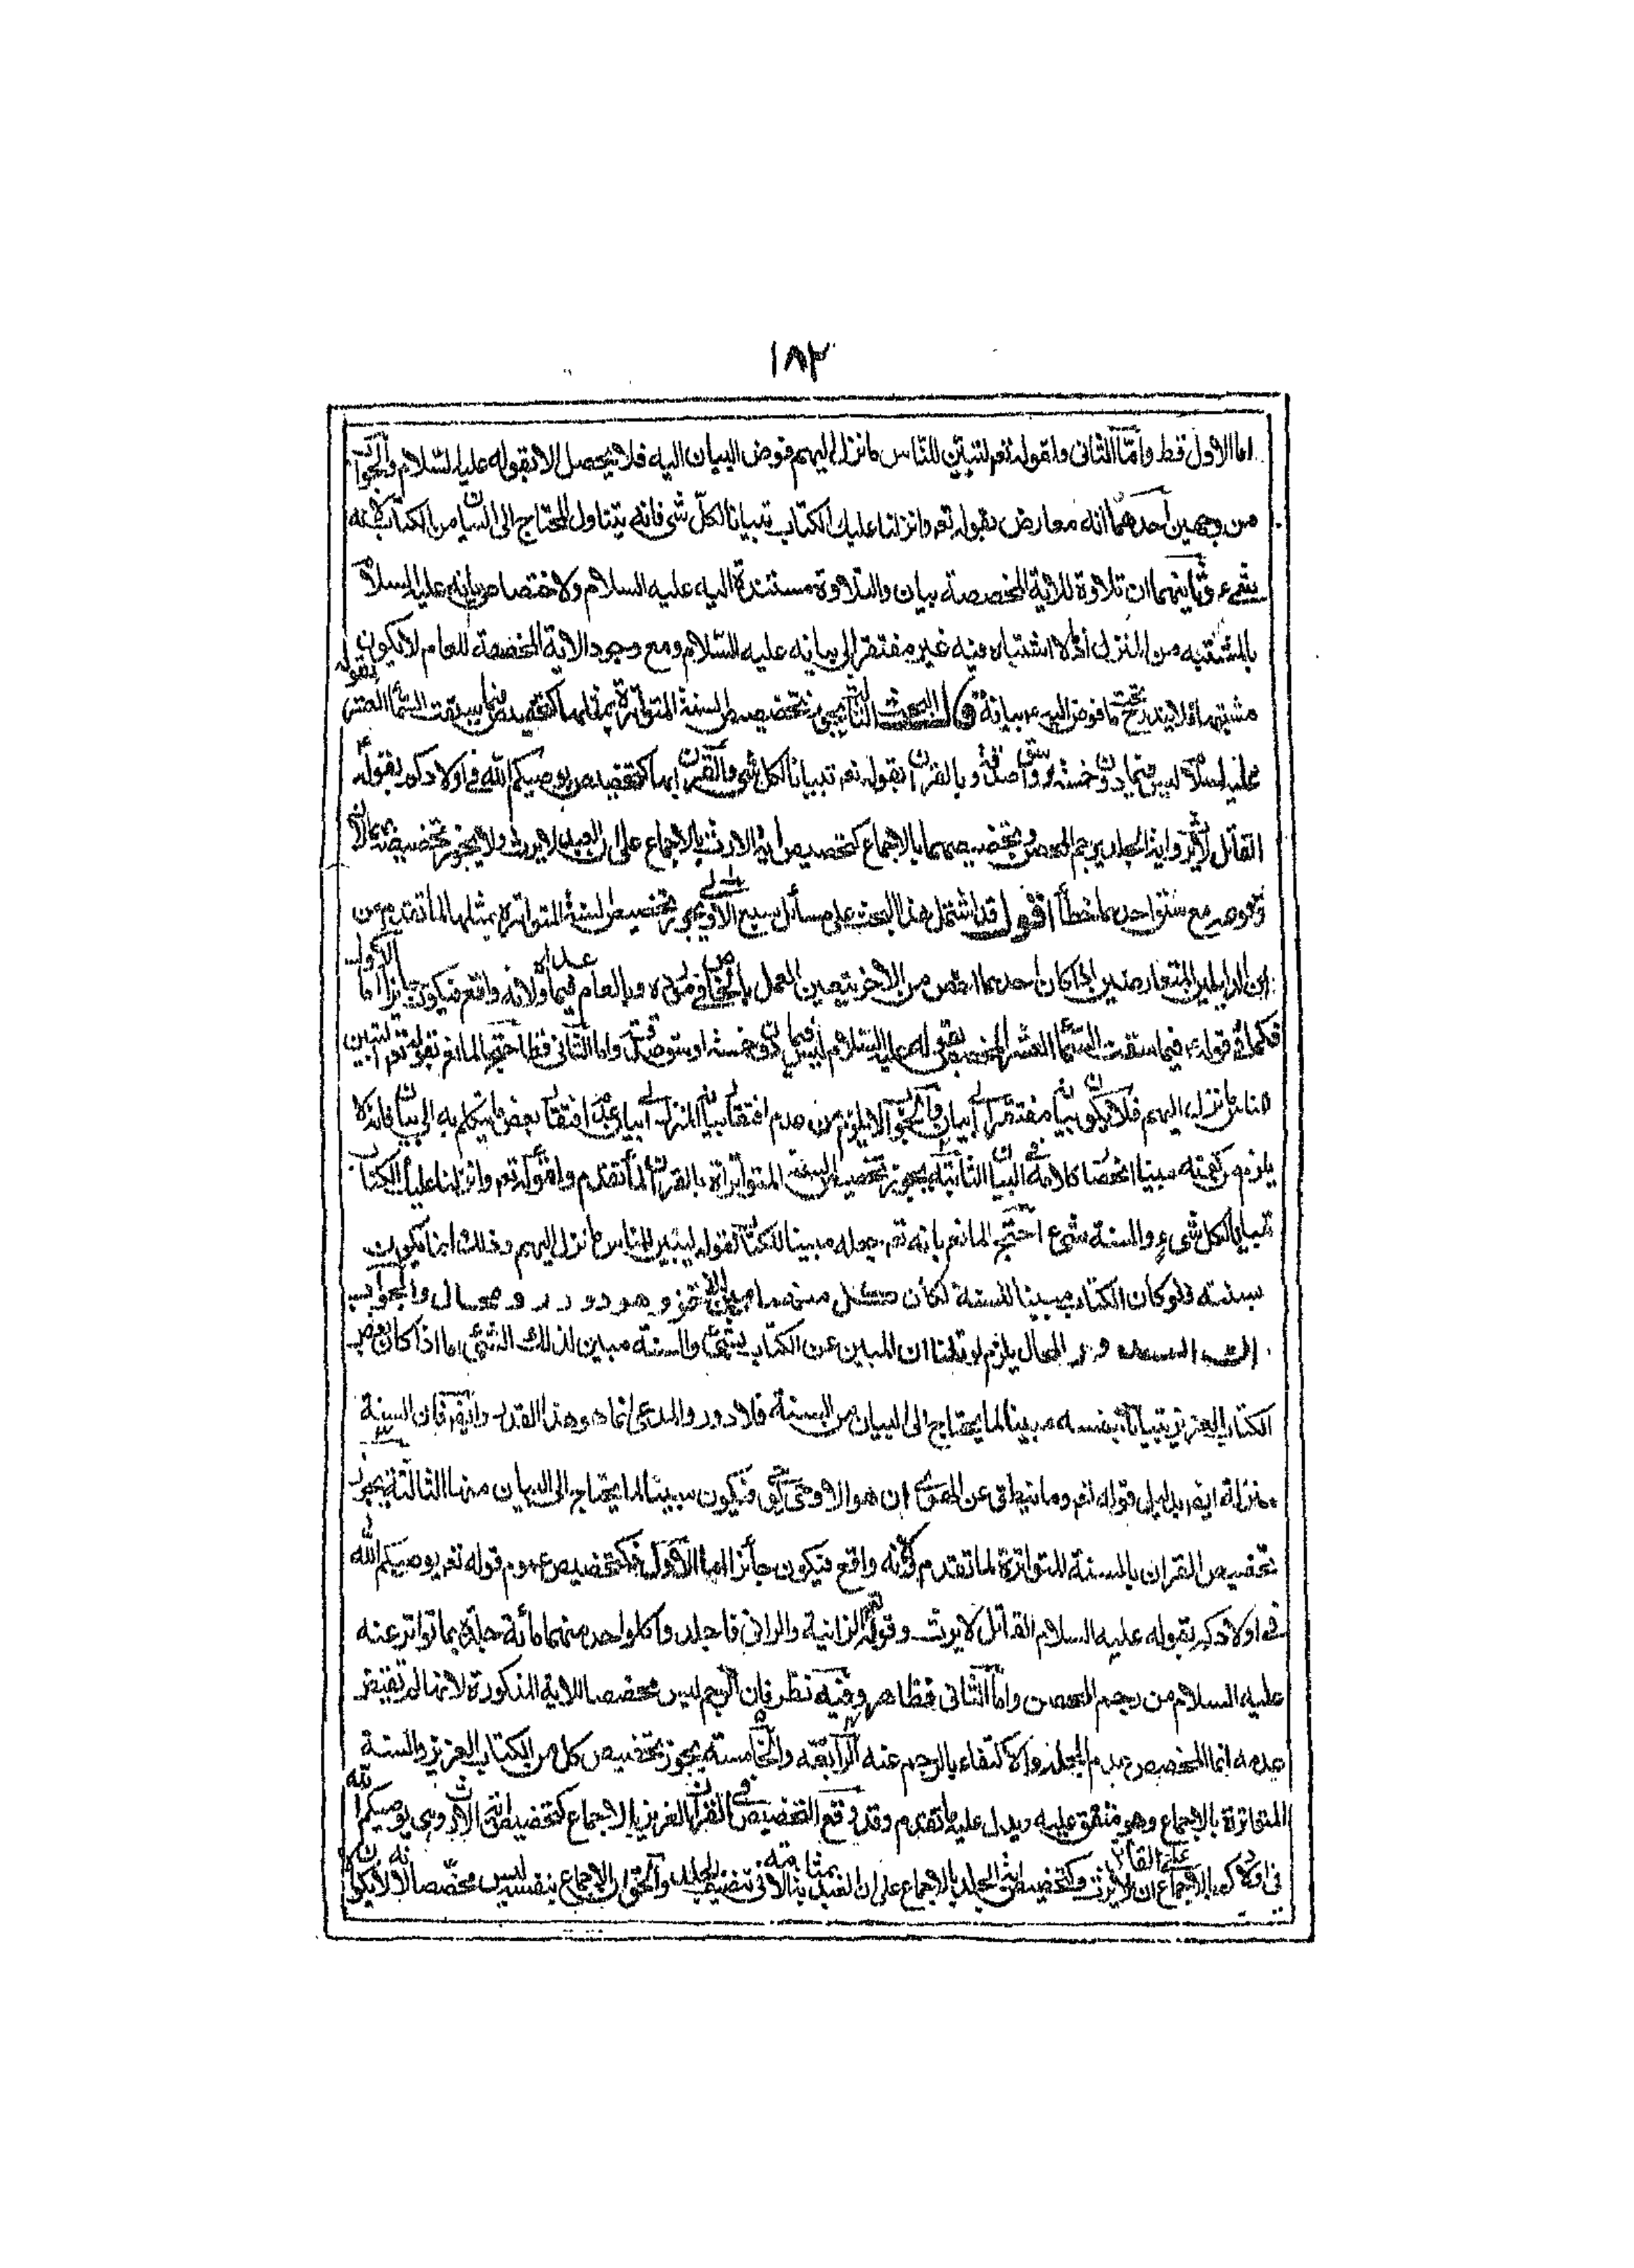 ١٨٢
اما الاول فظ واما الثانى ولقوله تعم لتبين للناس ما نزل اليهم فوض البيان اليه فلا يحصل الا بقوله عليه السلام والجواب
من وجهين احدهما انه معارض بقوله تعم وانزلنا عليك الكتاب تبيانا لكل شى فانه يتناول المحتاج الى البيان من الكتاب لانه
شىء وثانيهما ان تلاوة للاية المخصصة بيان والتلاوة مستندة اليه عليه السلام ولاختصاص بيانه عليه السلام
بالمشتبه من المنزل اذ لا اشتباه فيه غير مفتقر الى بيانه عليه السلام ومع وجود الاية المخصصة للعام لا يكون
مشتبها فلا يندرج تحت ما فوض اليه بيانه قال البحث الثانى يجوز تخصيص السنة المتواترة بمثلها كتخصيص فيما سقت السماء العشر بقوله
عليه السلام ليس فيما دون خمسة اوسق صدقة وبالقرآن لقوله تعم تبيانا لكل شى والقرآن بها كتخصيص يوصيكم الله فى اولادكم بقوله
القاتل لا يرث واية الجلد برجم المحصن وتخصيصهما بالاجماع كتخصيص اية الارث بالاجماع على ان العبد لا يرث ولا يجوز تخصيصه بهما لان
وقوعه مع سبق احدهما خطأ اقول قد اشتمل هذا البحث على مسائل سبع الاولى يجوز تخصيص السنة المتواترة بمثلها لما تقدم من
ان الدليلين المتعارضين اذا كان احدهما اخص من الاخر يتعين العمل بالخاص فى مورده وبالعام فيما عداه ولانه واقع فيكون جايزا اما الاول
فكما فى قوله فيما سقت السماء العشر المخصص بقوله عليه السلام ليس فيما دون خمسة اوسق صدقة واما الثانى فظ احتج المانع بقوله تعم لتبين
للناس ما نزل اليهم فلا يكون بيانه مفتقرا الى بيان والجواب لا يلزم من عدم افتقار بيانه المنزل الى بيان عدم افتقار بعض ما يتكلم به الى بيان فانه لا
يلزم من كونه مبينا اختصاص كلامه فى البيان الثانية يجوز تخصيص السنة المتواترة بالقرآن لما تقدم ولقوله تعم وانزلنا عليك الكتاب
تبيانا لكل شىء والسنة شىء احتج المانع بانه تعم جعله مبينا للكتاب لقوله لتبين للناس ما نزل اليهم وذلك انما يكون
بسنته فلو كان الكتاب مبينا للسنة لكان كل منهما مبينا للاخر وهو دور ومحال والجواب
الدور المحال يلزم لو قلنا ان المبين عن الكتاب بشىء والسنة مبين لذلك الشىء اما اذا كان بعض
الكتاب العزيز تبيانا بنفسه مبينا لما يحتاج الى البيان من السنة فلا دور والمدعى انما هو هذا القدر وايضم فان السنة
منزلة ايضم بدليل قوله تعم وما ينطق عن الهوى ان هو الا وحى يوحى فيكون مبينا لما يحتاج الى البيان منها الثالثة يجوز
تخصيص القران بالسنة المتواترة لما تقدم ولانه واقع فيكون جائزا اما الاول فكتخصيص عموم قوله تعم يوصيكم الله
فى اولادكم بقوله عليه السلام القاتل لا يرث وقوله تعم الزانية والزانى فاجلدوا كل واحد منهما مائة جلدة بما تواتر عنه
عليه السلام من رجم المحصن واما الثانى فظاهر وفيه نظر فان الرجم ليس مخصصا للاية المذكورة لانها لم تقتض
عدمه انما المخصص عدم الجلد والاكتفاء بالرجم عنه الرابعة والخامسة يجوز تخصيص كل من الكتاب العزيز والسنة
المتواترة بالاجماع وهو متفق عليه ويدل عليه ما تقدم وقد وقع التخصيص فى القران العزيز بالاجماع كتخصيص اية الارث وهى يوصيكم الله
فى اولادكم بالاجماع على ان القاتل لا يرث وكتخصيص اية الجلد بالاجماع على ان العبد بمثابة الامة فى تنصيف الجلد والحق ان الاجماع بنفسه ليس مخصصا لانه لا يكون